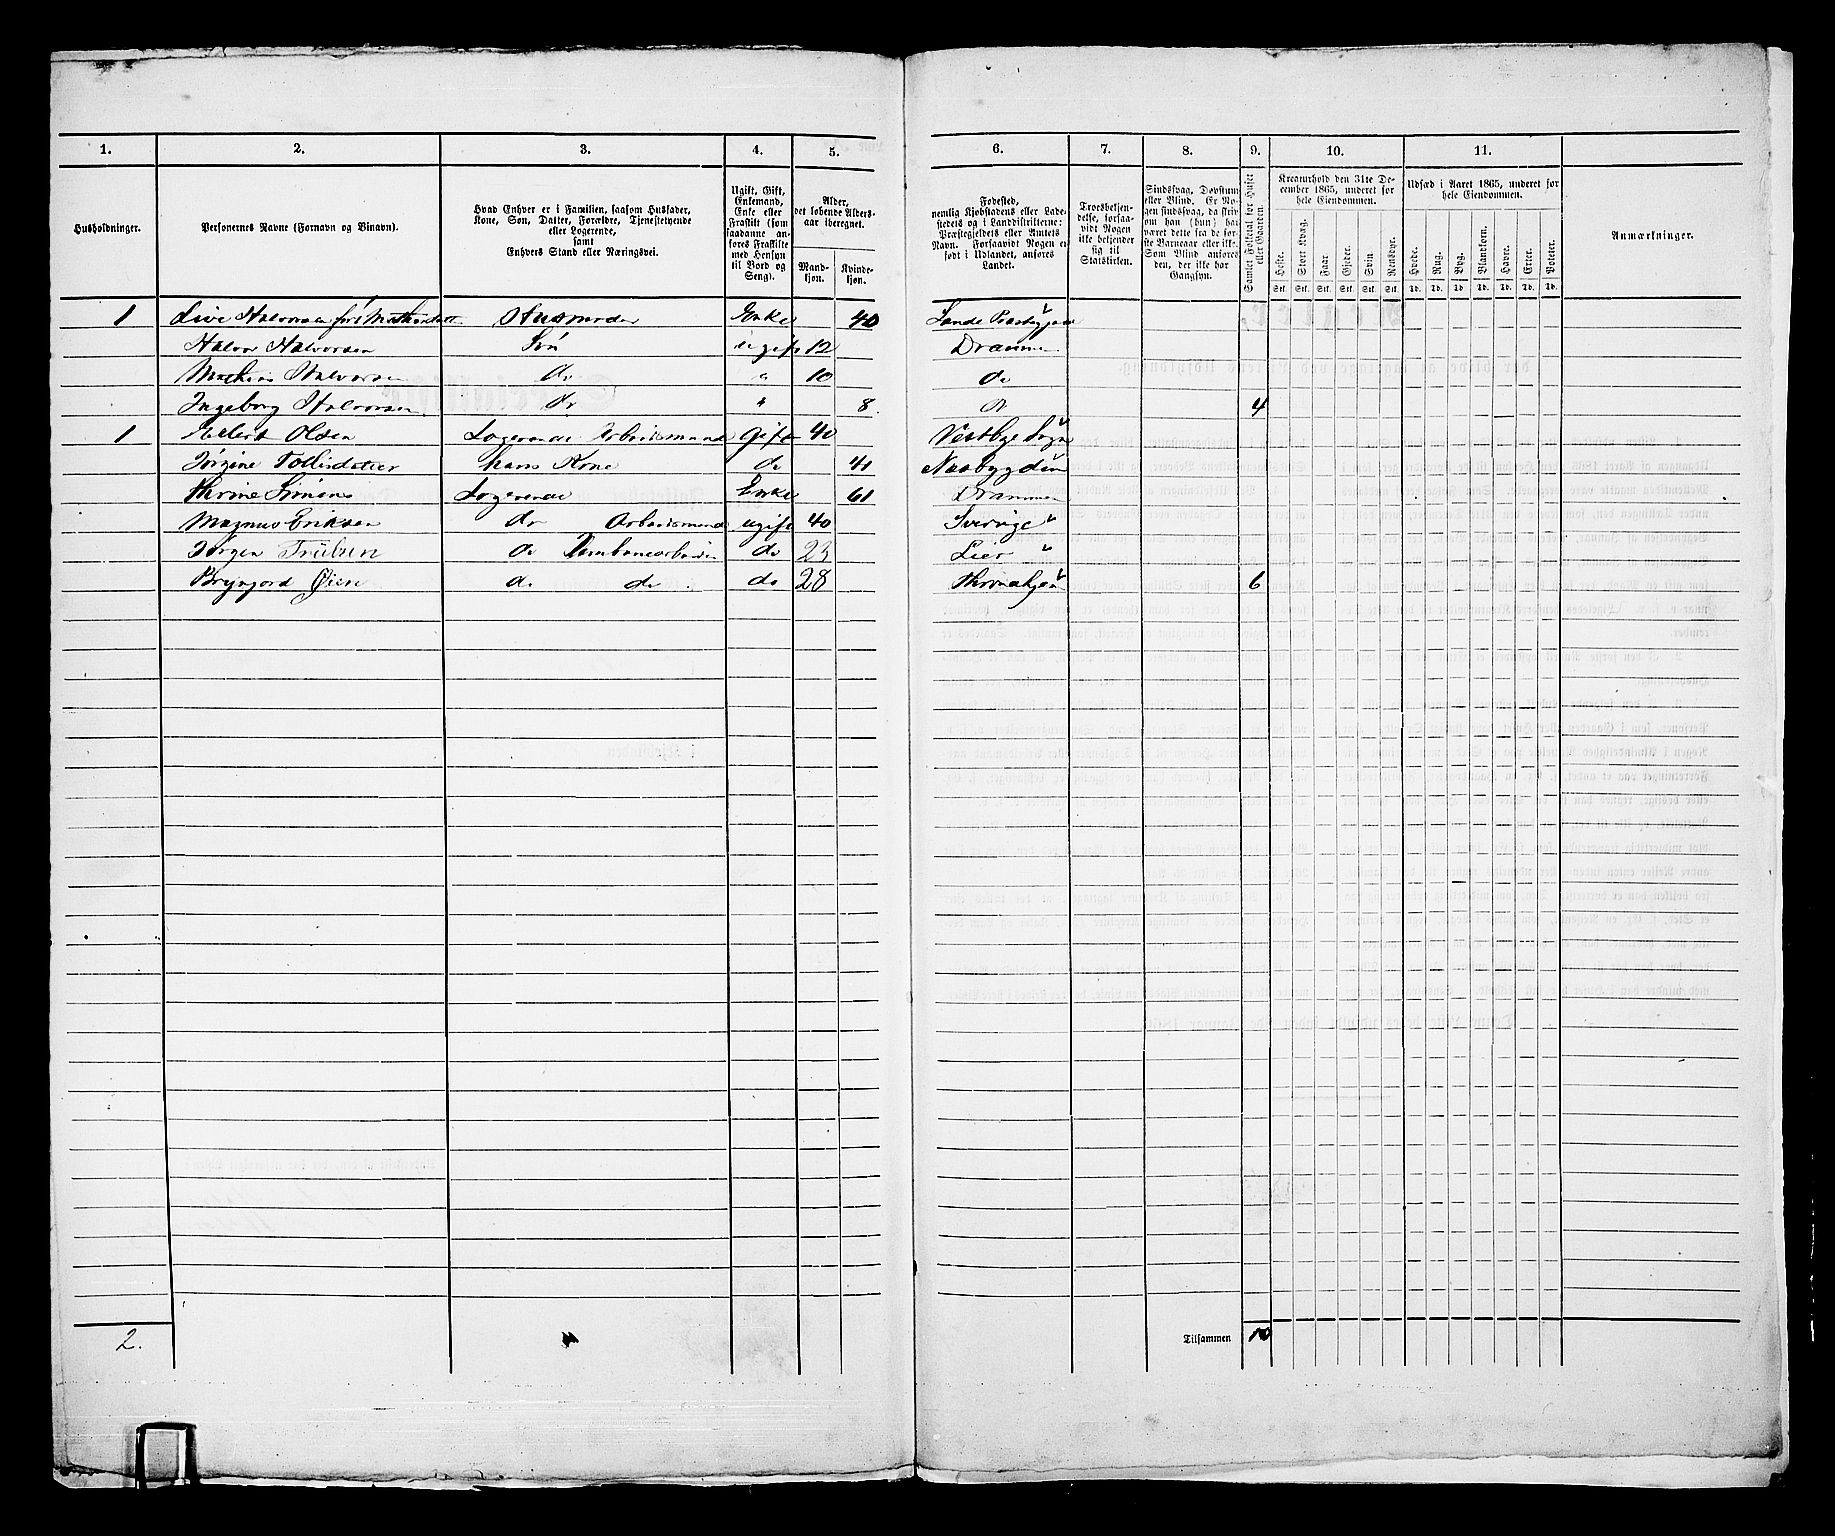 1. 2. 3. 4. 5. 6. 7. 8. 9. 10. 11.
Husholdninger.
Personernes Navne (Fornavn og Binavn).
Hvad Enhver er i Familien, saasom Husfader,
Kone, Søn, Datter, Forældre, Tjenestetyende
eller Logerende,
samt
Enhvers Stand eller Næringsvei.
Ugift, Gift,
Enkemand,
Enke eller
Fraskilt (som
saadanne an-
føres Fraskilte
med Hensyn
til Bord og
Seng).
Alder,
det løbende Alders-
aar iberegnet.
Mand-
kjøn.
Kvinde-
kjøn.
Fødested,
nemlig Kjøbstadens eller Lade-
stedets og i Landdistrikterne:
Præstegjeldets eller Amtets
Navn. Forsaavidt Nogen er
født i Udlandet, anføres
Landet.
Troesbekjen-
delse, forsaa-
vidt Nogen
ikke bekjender
sig til
Statskirken.
Sindssvag, Døvstum
eller Blind. Er No-
gen sindssvag, da skriv
om han (hun) har
været dette fra de før-
ste Barneaar eller ikke.
Som Blind anføres
den, der ikke har
Gangsyn.
Samlet Folketal for Huset
eller Gaarden.
Kreaturhold den 31te De-
cember 1865, underet for
hele Eiendommen.
Heste. Stort Kvæg. Faar. Gjeder. Svin. Rensdyr.
Stk. Stk. Stk. Stk. Stk. Stk.
Udsæd i Aaret 1865, underet for
hele Eiendommen.
Hvede. Rug. Byg. Blandkorn. Havre. Erter. Poteter.
Td. Td. Td. Td. Td. Td. Td.
Anmærkninger.
1 Live Halvorsen Husmoder Enke 40 Sande
Halvor Halvorsen Søn ugift 12 Drammen
Mathias Halvorsen do " 10 do
Ingeborg Halvorsen do " 8 do 4
1 Olsen Logerende Arbeidsmand Gift 40 Vestbye Sogn
Jørgine hans Kone do 41 Næsbygden
Simens Logerende Enke 61 Drammen
Magnus Eriksen do Arbeidsmand ugift 40 Sverige
Jørgen do do 23 Lier
Øien do do do 28 Throndhjem 6
2.
Tilsammen 10